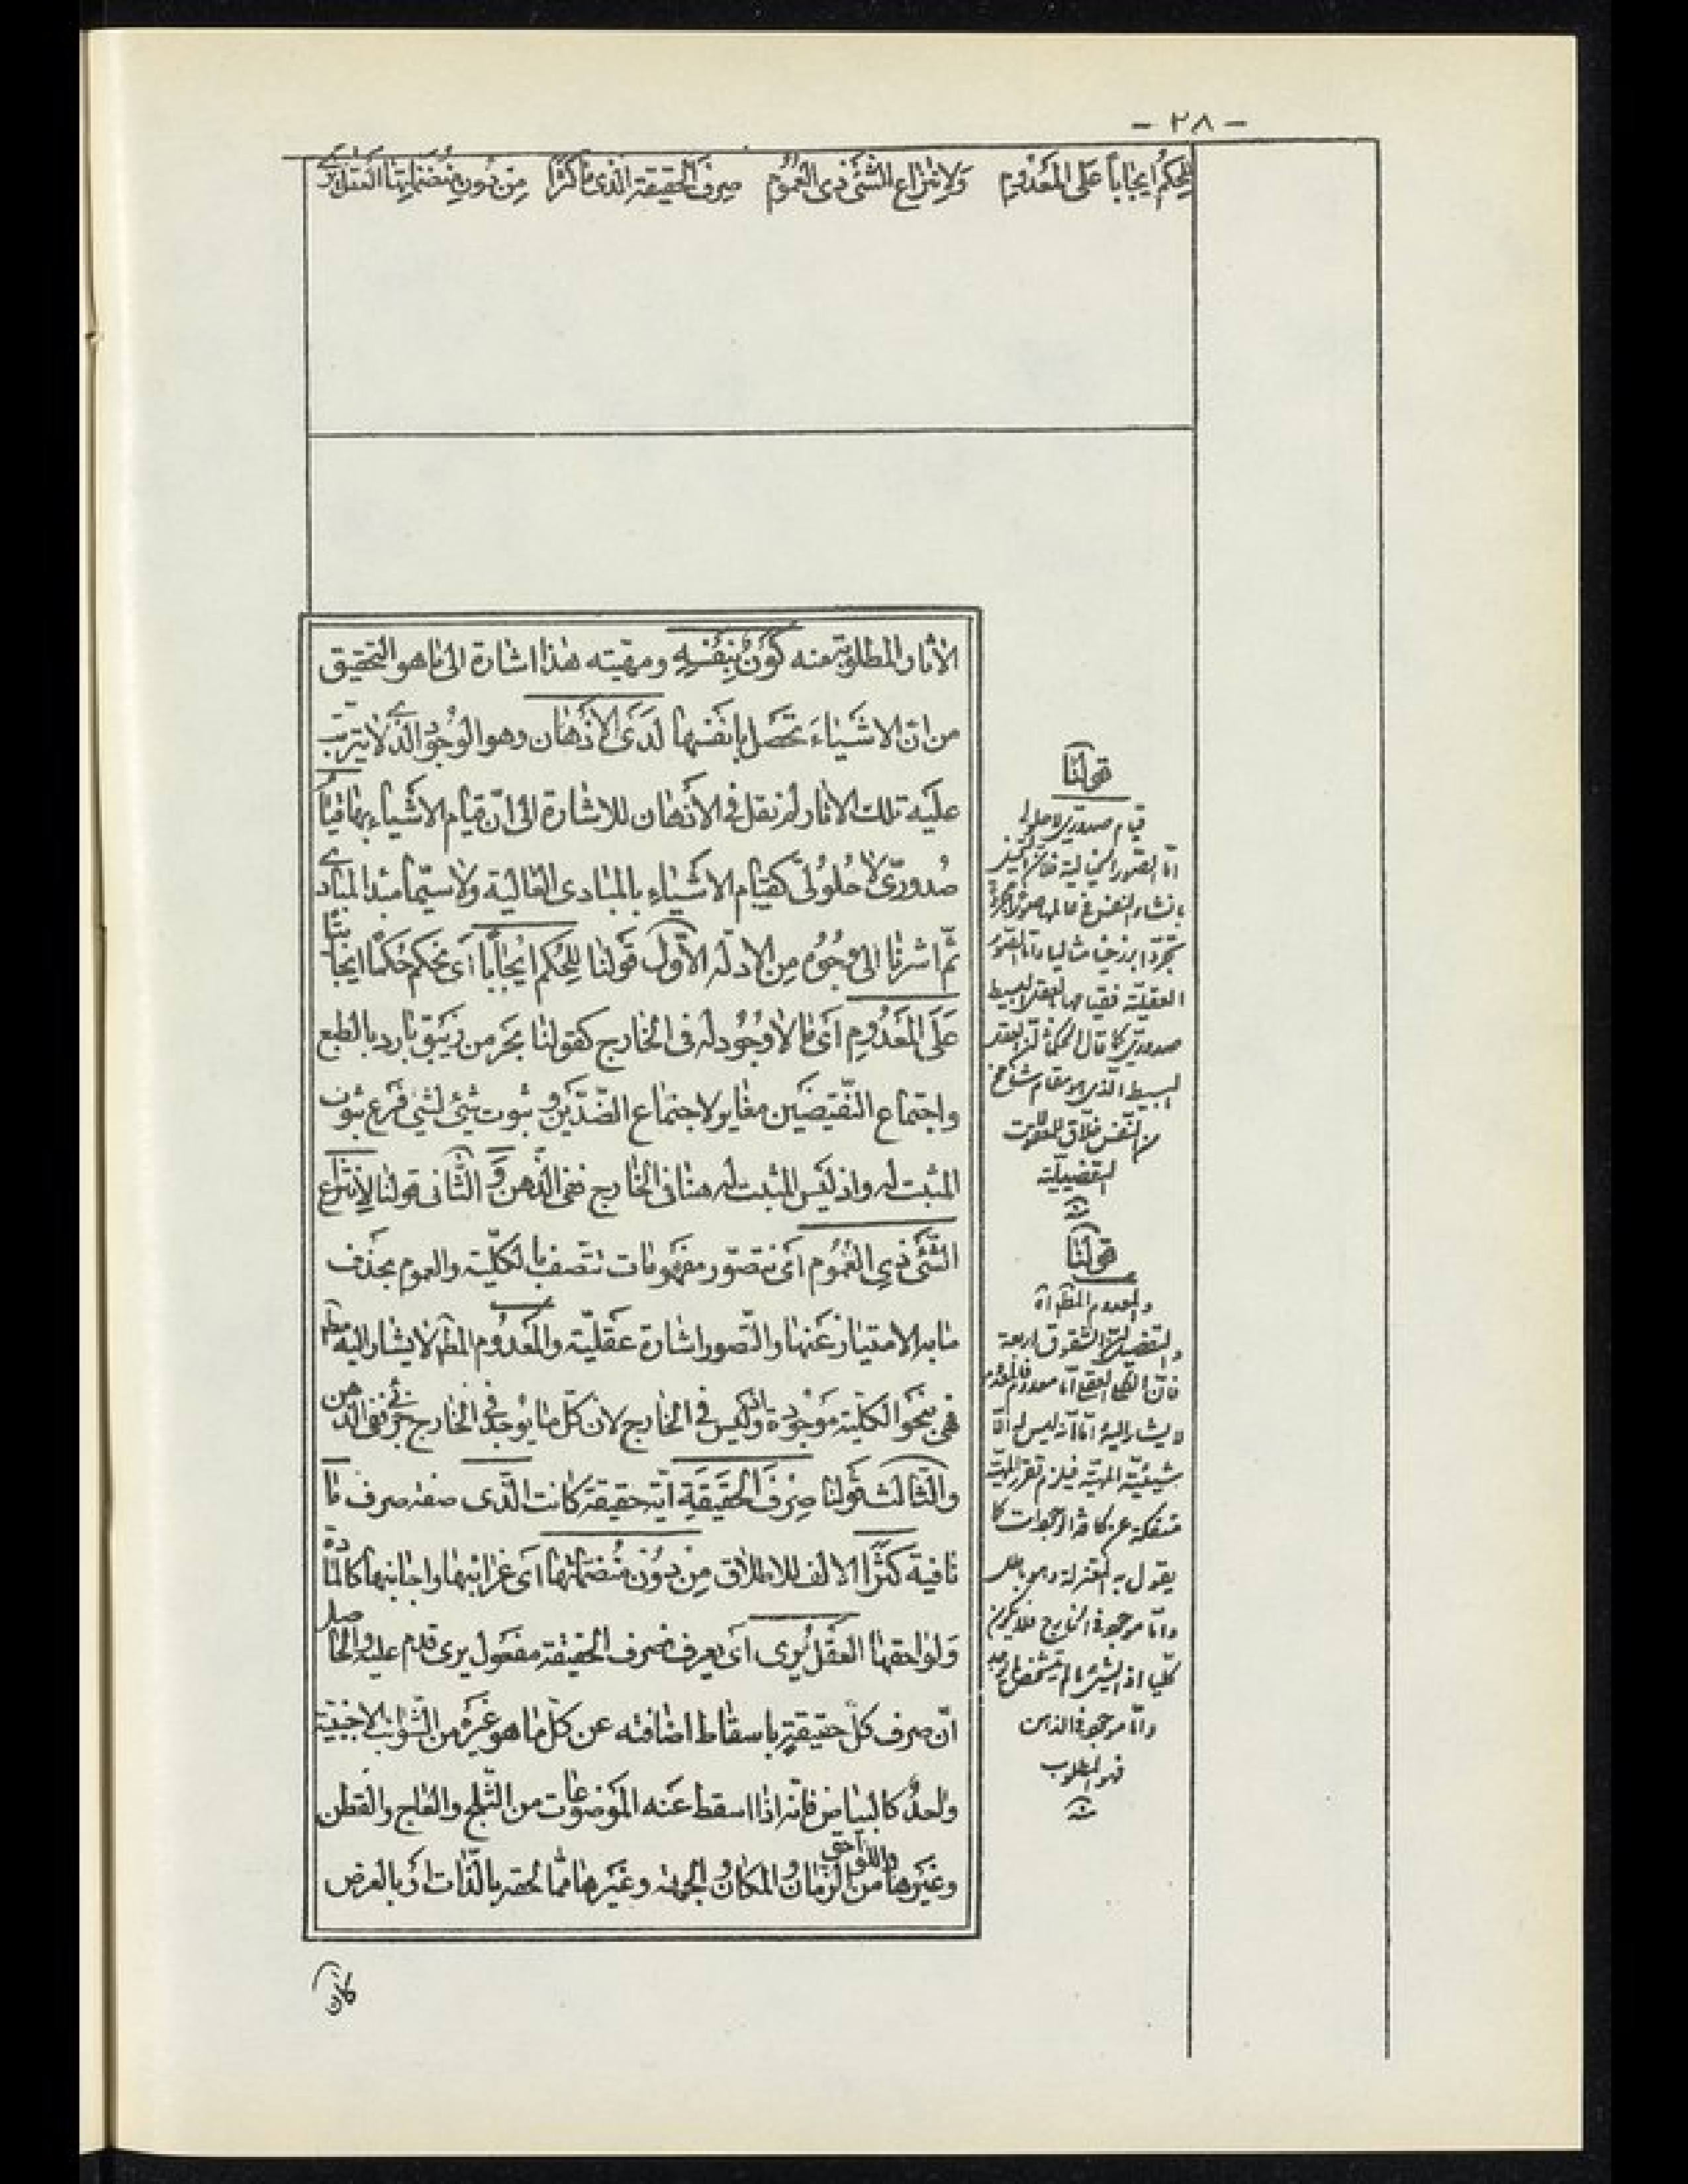 - ٢٨ -
للحكم ايجابا على المعدوم ولانتزاع الشئ ذى العموم صرف الحقيقة الذى ما كثرا من دون منضماتها العقل يرى
الاثار المطلوبة منه كون بنفسه ومهيته هذا اشارة الى ما هو التحقيق
من ان الاشياء تحصل بانفسها لدى الاذهان وهو الوجود الذى لا يترتب
عليه تلك الاثار لم نقل فى الاذهان للاشارة الى ان قيام الاشياء بها قياما
صدورى لا حلولى كقيام الاشياء بالمبادى العالية ولا سيما مبدا المبادى
ثم اشرنا الى وجوه من الادلة الاول قولنا للحكم ايجابا اى نحكم حكما ايجابيا
على المعدوم اى ما لا وجود له فى الخارج كقولنا بحر من زيبق بارد بالطبع
واجتماع النقيضين مغاير لاجتماع الضدين وثبوت شئ لشئ فرع ثبوت
المثبت له واذ ليس المثبت له هنا فى الخارج ففى الذهن و الثانى قولنا لانتزاع
الشئ ذى العموم اى نتصور مفهومات تتصف بالكلية والعموم بحذف
ما به الامتياز عنها والتصور اشارة عقلية والمعدوم المط لا يشار اليه مط
فهى بنحو الكلية موجودة واذ ليس فى الخارج لان كل ما يوجد فى الخارج جزئى ففى الذهن
والثالث قولنا صرف الحقيقة اية حقيقة كانت الذى صفة صرف ما
نافية كثرا الالف للاطلاق من دون منضماتها اى غرائبها واجانبها كالمادة
ولواحقها العقل يرى اى يعرف صرف الحقيقة مفعول يرى قدم عليه والحاصل
ان صرف كل حقيقة باسقاط اضافته عن كل ما هو غيره من الشوائب الاجنبية
واحد كالبياض فانه اذا اسقط عنه الموضوعات من الثلج والعاج والقطن
وغيرها واللواحق من الزمان والمكان والجهة وغيرها مما لحقه بالذات او بالعرض
كان
قولنا
قيام صدورى لا حلولى
اما الصور الخيالية
بانشاء النفس فى عالمها
تجردا برزخيا مثاليا واما الصور
العقلية فقيامها بالعقل البسيط
صدورى كما قال الحكماء ان العقل
البسيط الذى هو مقام شامخ
من النفس خلاق للمعقولات
التفصيلية
منه
قولنا
والمعدوم المط اه
والتفصيل ان الشقوق اربعة
فان الكلى العقلى اما معدوم فالمعدوم
لا يشار اليه اما انه ليس له الا
شيئية المهية فيلزم تقرر المهية
منفكة عن كافة الوجودات كما
يقول به المعتزلة وهو باطل
واما موجود فى الخارج فلا يكون
كليا اذ الشئ ما لم يتشخص لم يوجد
واما موجود فى الذهن
فهو المطلوب
منه